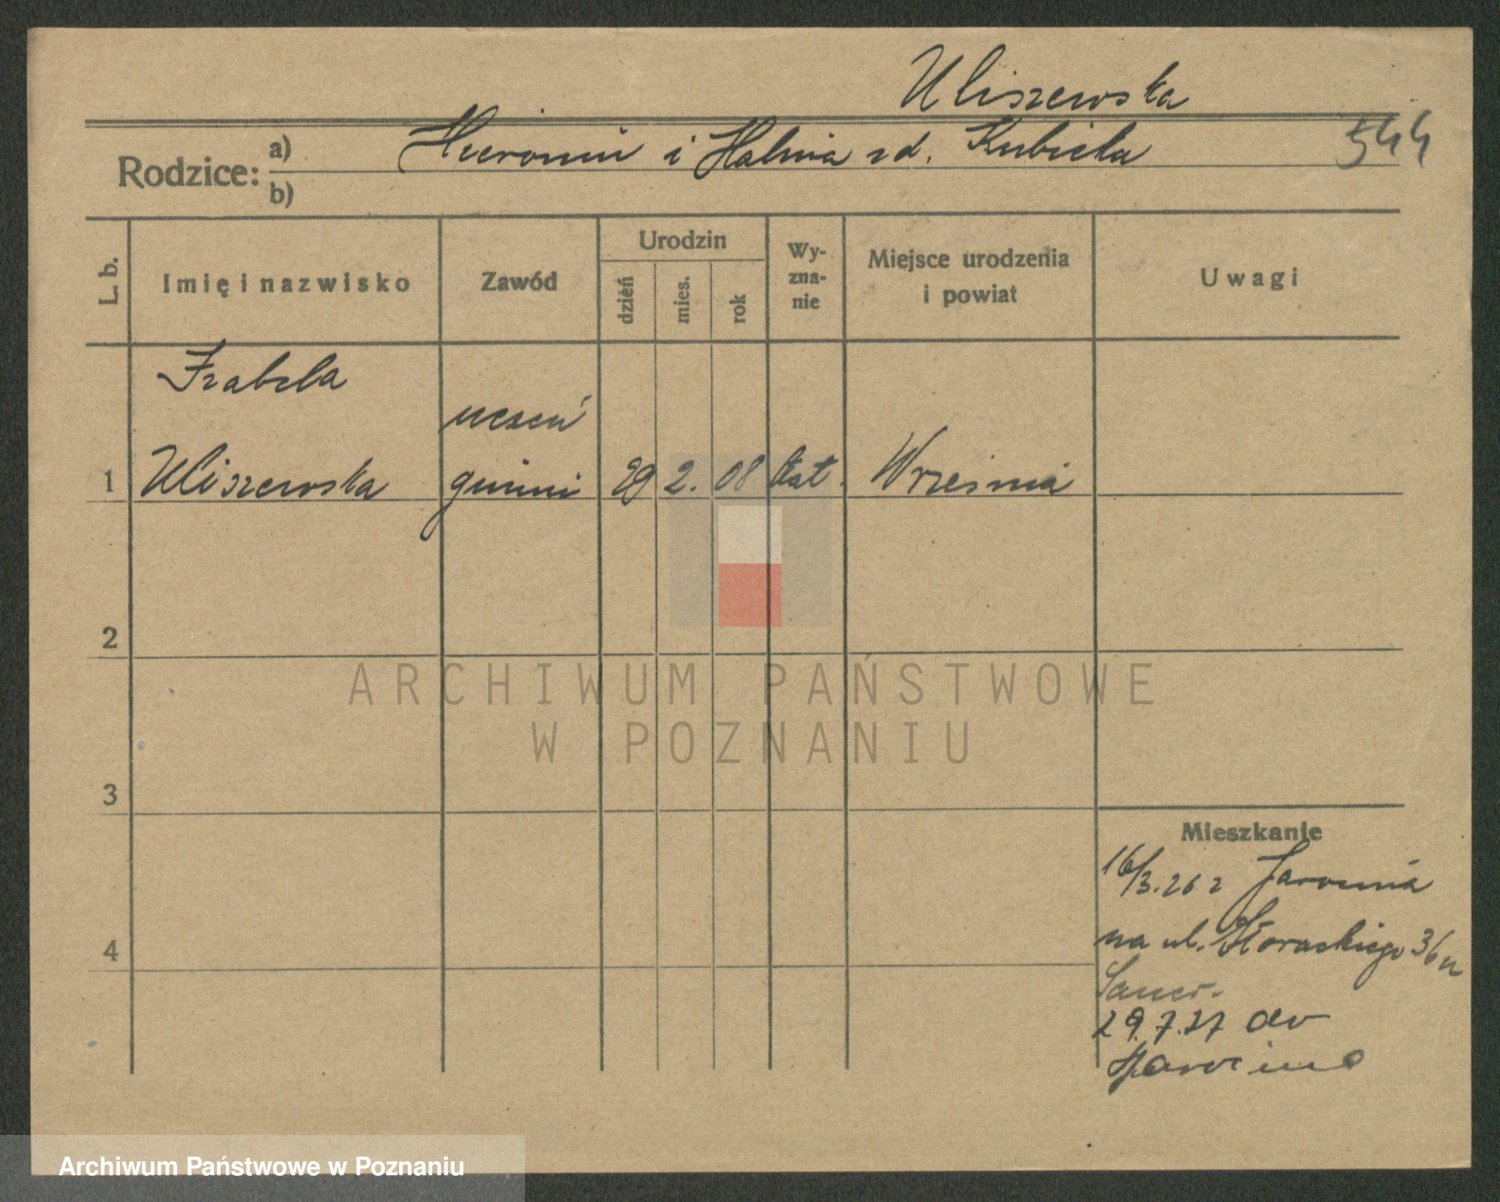 Uliszewska
Rodzice: a) Hieronim i Halina zd. Kubicka 544
b)
L. b.
Imię i nazwisko
Zawód
Urodzin
dzień
mies.
rok
Wy-
zna-
nie
Miejsce urodzenia
i powiat
Uwagi
Izabela
uczeń
1 Uliszewska gimni 29 2. 08 kat. Września
2
3
4
Mieszkanie
16/3.26 z Jarocina
na ul. 36
29.7.27 do
Jarocina
ARCHIWUM PAŃSTWOWE
W POZNANIU
Archiwum Państwowe w Poznaniu